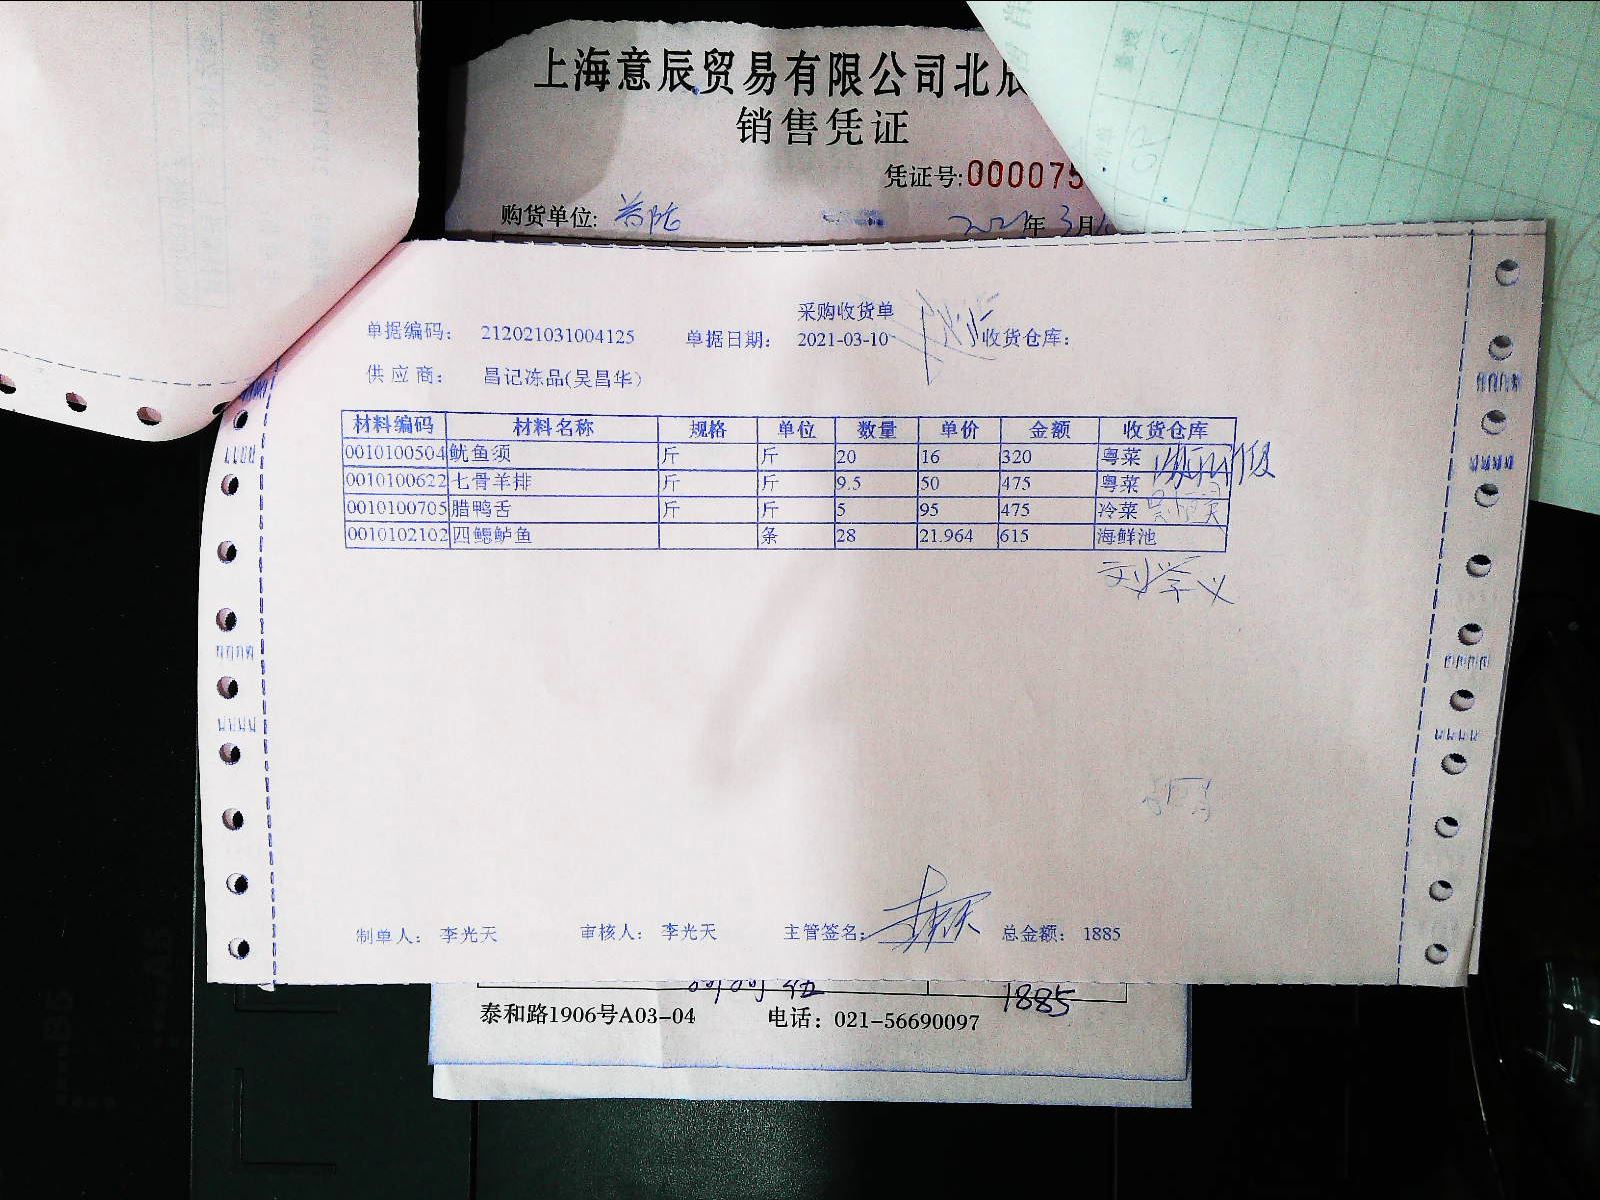 上海意辰贸易有限公司北辰
销售凭证
凭证号:000075
购货单位:
2021年3月
采购收货单
单据编码: 212021031004125 单据日期: 2021-03-10 收货仓库:
供应商: 昌记冻品(吴昌华)
材料编码 材料名称 规格 单位 数量 单价 金额 收货仓库
0010100504 鱿鱼须 斤 斤 20 16 320 粤菜
0010100622 七骨羊排 斤 斤 9.5 50 475 粤菜
0010100705 腊鸭舌 斤 斤 5 95 475 冷菜
0010102102 四鳃鲈鱼 条 28 21.964 615 海鲜池
刘学义
制单人: 李光天 审核人: 李光天 主管签名: 总金额: 1885
1885
泰和路1906号A03-04 电话: 021-56690097